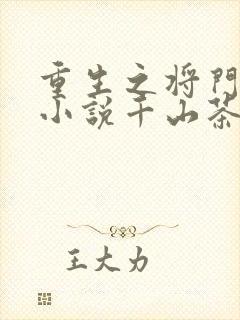 重生之将門
小説千山茶
王大力